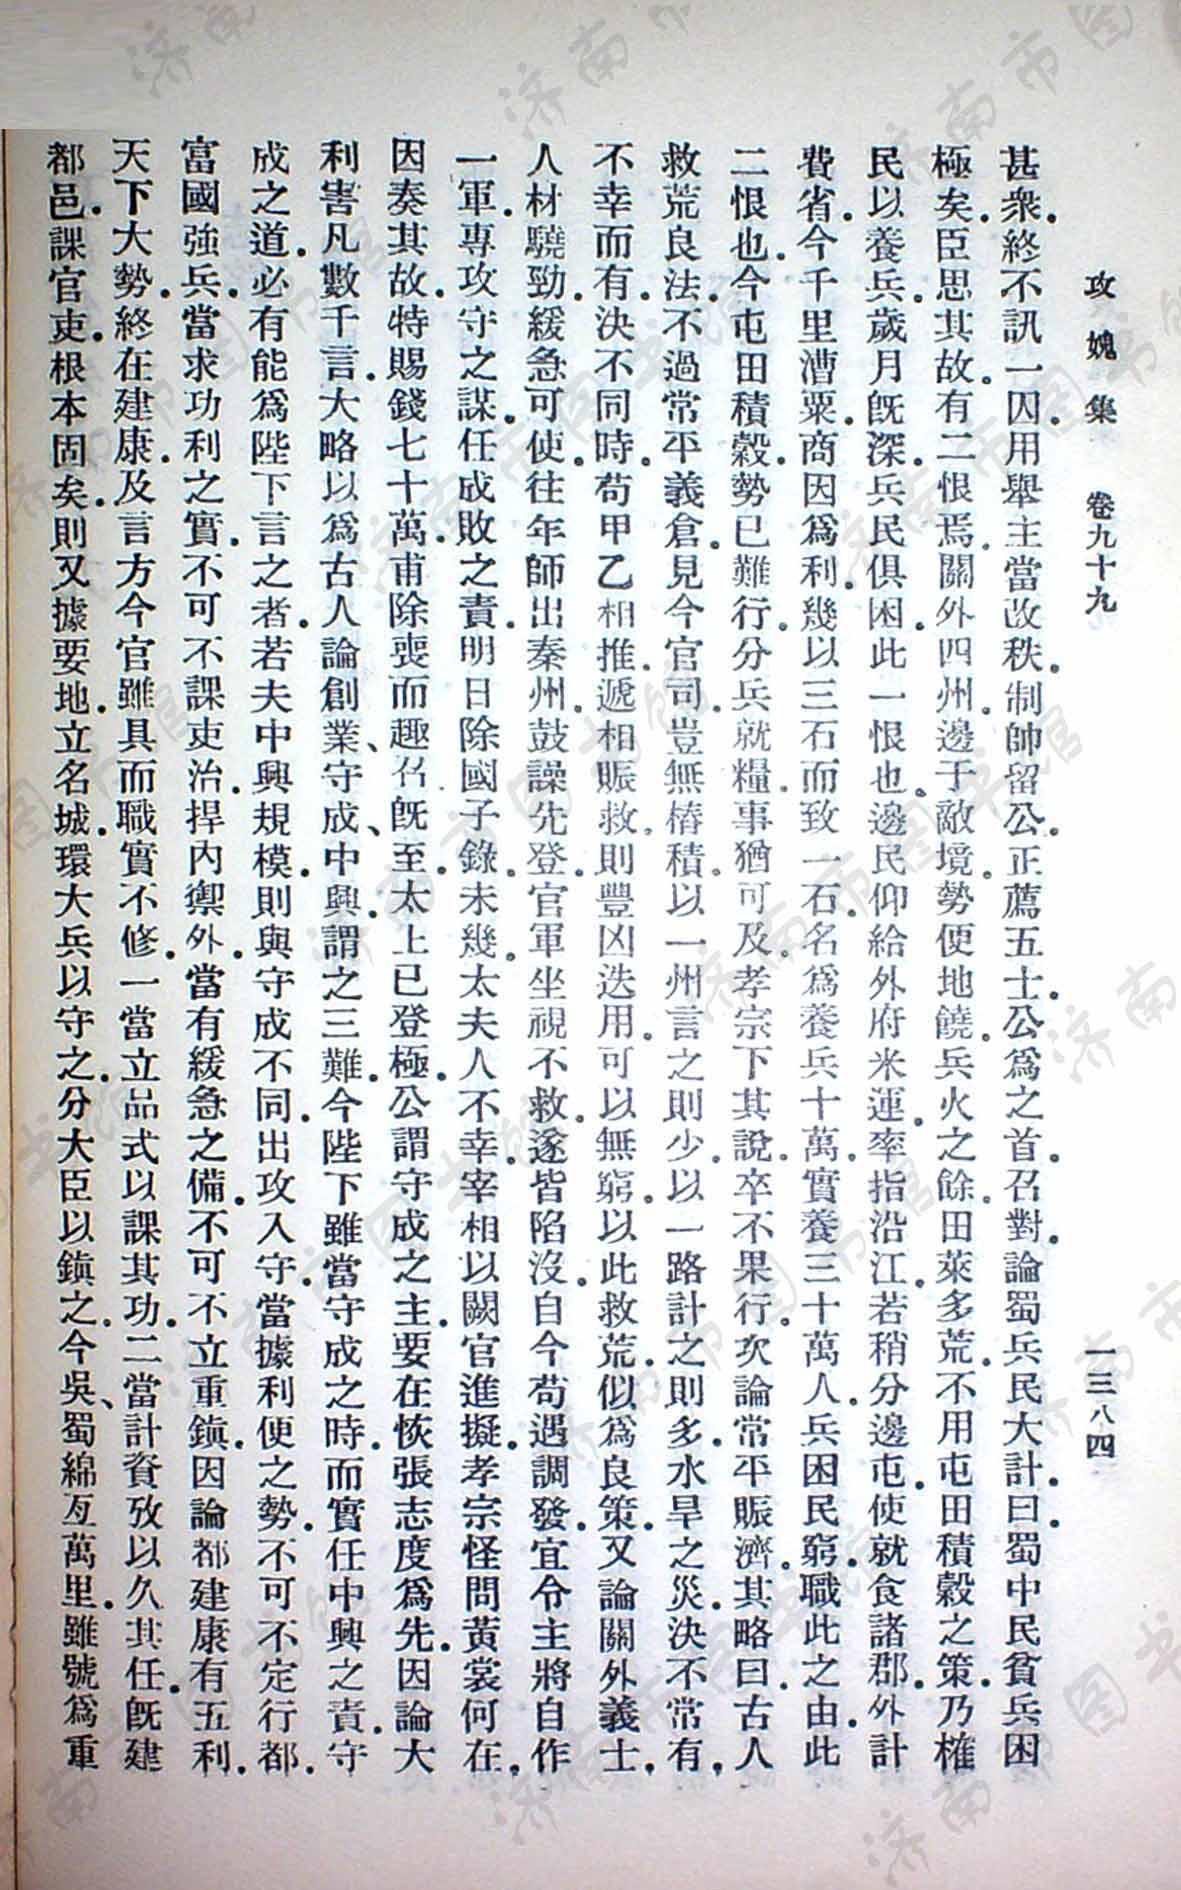 攻媿集　卷九十九　一三八四
甚衆.終不訊一囚.用舉主當改秩.制帥留公.正薦五士.公爲之首.召對.論蜀兵民大計.曰.蜀中民貧兵困
極矣.臣思其故.有二恨焉.關外四州.邊于敵境.勢便地饒.兵火之餘.田萊多荒.不用屯田積穀之策.乃榷
民以養兵.歲月旣深.兵民俱困.此一恨也.邊民仰給外府米運.率指沿江.若稍分邊屯.使就食諸郡.外計
費省.今千里漕粟.商因爲利.幾以三石而致一石.名爲養兵十萬.實養三十萬人.兵困民窮.職此之由.此
二恨也.今屯田積穀.勢已難行.分兵就糧.事猶可及.孝宗下其說.卒不果行.次論常平賑濟.其略曰.古人
救荒良法.不過常平義倉.見今官司.豈無樁積.以一州言之則少.以一路計之則多.水旱之災.決不常有.
不幸而有.決不同時.苟甲乙相推.遞相賑救.則豐凶迭用.可以無窮.以此救荒.似爲良策.又論關外義士.
人材驍勁.緩急可使.往年師出秦州.鼓譟先登.官軍坐視不救.遂皆陷沒.自今苟遇調發.宜令主將自作
一軍.專攻守之謀.任成敗之責.明日除國子錄.未幾.太夫人不幸.宰相以闕官進擬.孝宗怪問黃裳何在.
因奏其故.特賜錢七十萬.甫除喪而趣召.旣至.太上已登極.公謂守成之主.要在恢張志度爲先.因論大
利害凡數千言.大略以爲古人論創業、守成、中興.謂之三難.今陛下雖當守成之時.而實任中興之責.守
成之道.必有能爲陛下言之者.若夫中興規模.則與守成不同.出攻入守.當據利便之勢.不可不定行都.
富國強兵.當求功利之實.不可不課吏治.捍內禦外.當有緩急之備.不可不立重鎭.因論都建康有五利.
天下大勢.終在建康.及言方今官雖具而職實不修.一當立品式以課其功.二當計資攷以久其任.旣建
都邑.課官吏.根本固矣.則又據要地.立名城.環大兵以守之.分大臣以鎭之.今吳、蜀綿亙萬里.雖號爲重